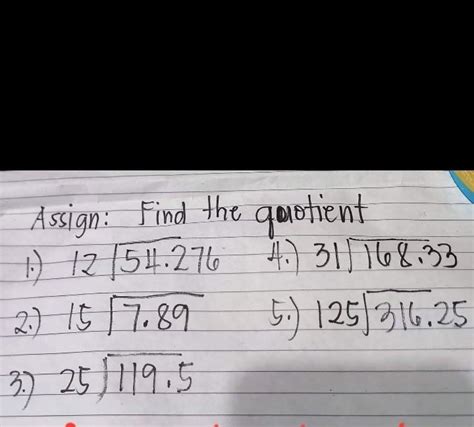 Assign: Find the quotient
1.) 12 54.276
2.) 15 7.89
3.) 25 119.5
4.) 31 168.33
5.) 125 316.25